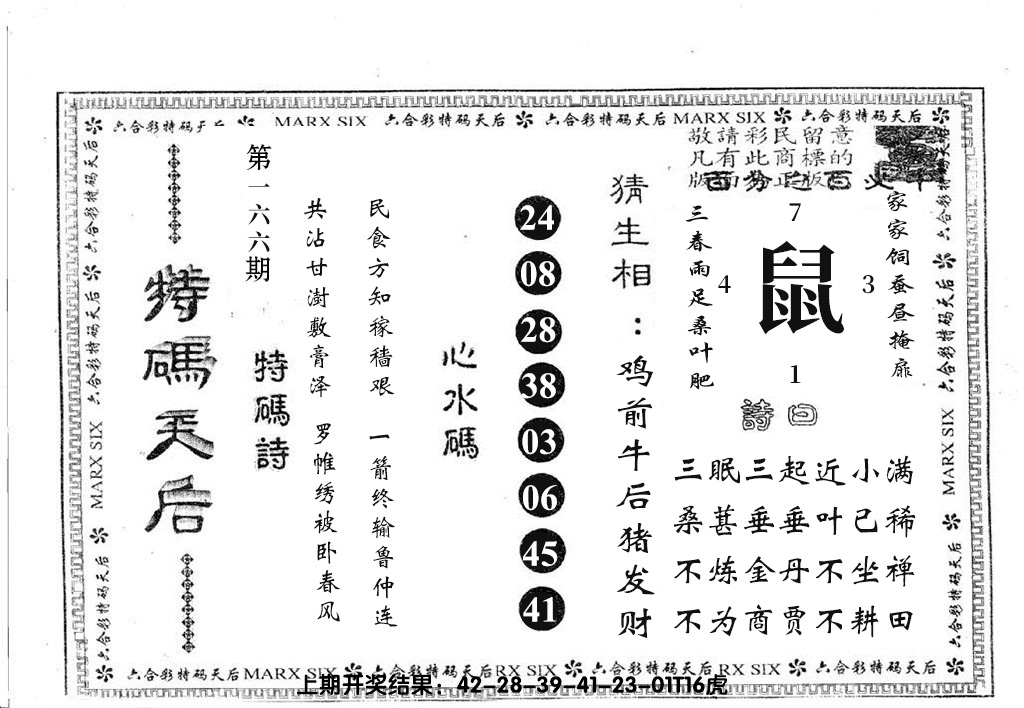 六合彩特码天后 MARX SIX 六合彩特码天后 六合彩特码天后 MARX SIX 六合彩特码天后
敬請彩民留意
凡有此商標的
第一六六期
特碼天后
特碼詩
民食方知稼穑艰 一箭终输鲁仲连
共沾甘澍敷膏泽 罗帷绣被卧春风
心水碼
24
08
28
38
03
06
45
41
猜生相：鸡前牛后猪发财
家家饲蚕昼掩扉
三春雨足桑叶肥
7
4
鼠
3
1
詩曰
三眠三起近小满
桑甚垂垂叶已稀
不炼金丹不坐禅
不为商贾不耕田
六合彩特码天后
MARX SIX
六合彩特码天后
六合彩特码天后
MARX SIX
六合彩特码天后
六合彩特码天后 MARX SIX 六合彩特码天后 RX SIX 六合彩特码天后 RX SIX 六合彩特码天后
上期开奖结果：42-28-39-41-23-01T16虎